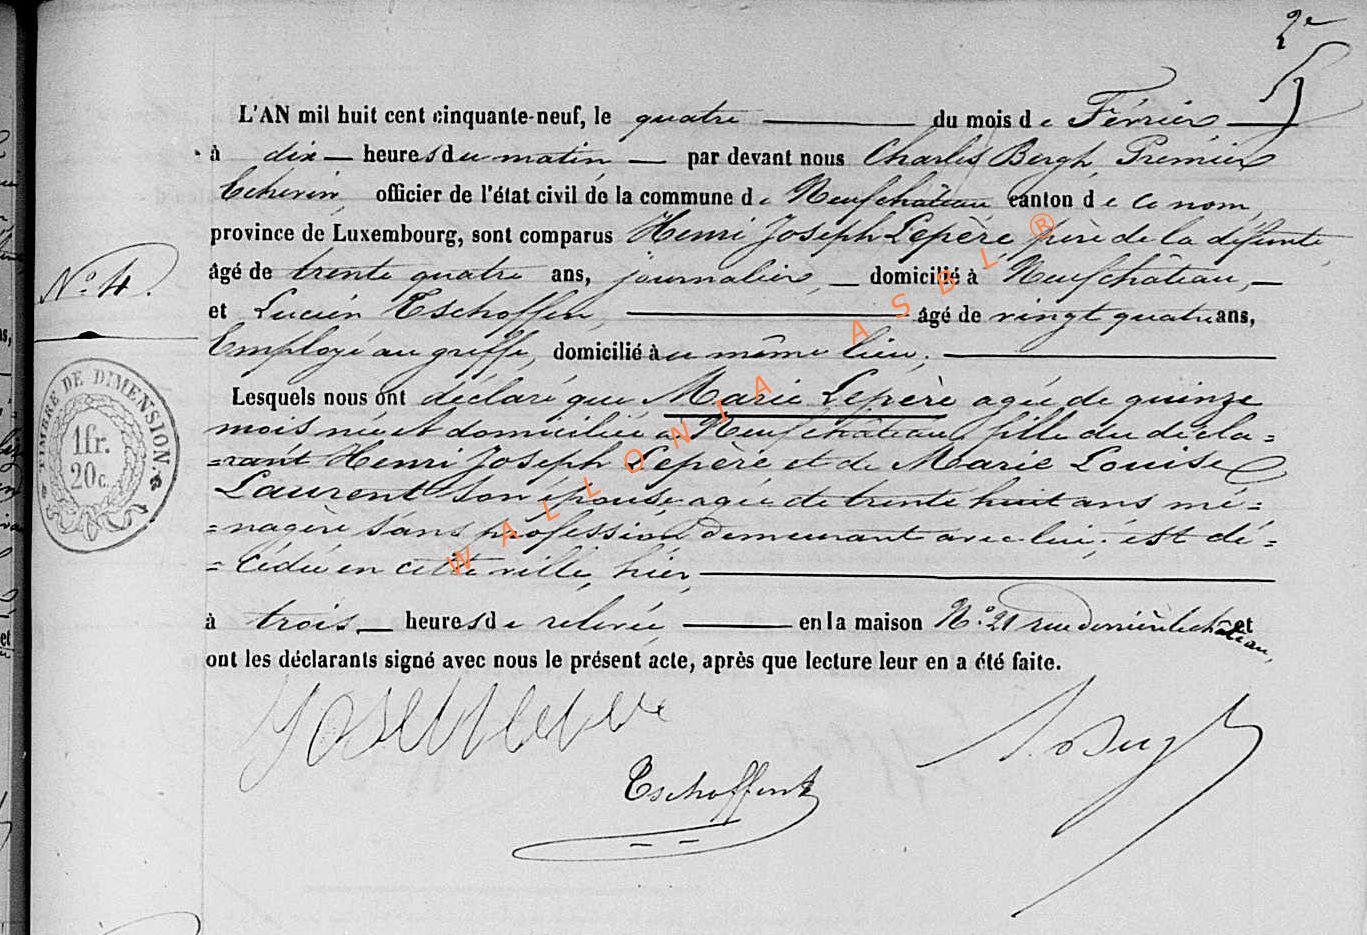 2e
L'AN mil huit cent cinquante-neuf, le quatre du mois de Février
à dix heures du matin par devant nous Charles Bergh, Premier
Echevin, officier de l'état civil de la commune de Neufchâteau canton de ce nom,
province de Luxembourg, sont comparus Henri Joseph Lepère père de la défunte,
âgé de trente quatre ans, journalier, domicilié à Neufchâteau,
N° 4.
et Lucien Tschoffen, âgé de vingt quatre ans,
Employé au greffe, domicilié au même lieu.
Lesquels nous ont déclaré que Marie Lepère agée de quinze
mois née et domiciliée à Neufchâteau, fille du décla=
=rant Henri Joseph Lepère et de Marie Louise
Laurent son épouse agée de trente huit ans mé=
=nagère sans profession demeurant avec lui; est dé=
=cédée en cette ville, hier,
à trois heures de relevée en la maison N° 21 rue derrière le château, et
ont les déclarants signé avec nous le présent acte, après que lecture leur en a été faite.
TIMBRE DE DIMENSION.
1fr.
20c.
Tschoffen
WALLONIA ASBL ®